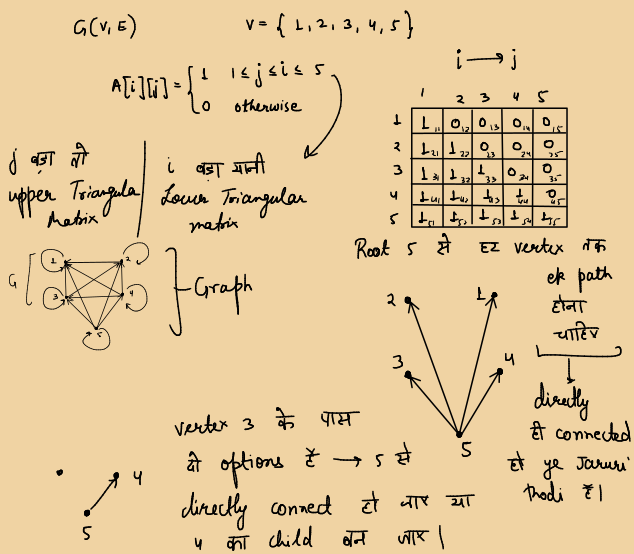 G(V, E)
V = { 1, 2, 3, 4, 5 }
A[i][j] = { 1 1 ≤ j ≤ i ≤ 5
0 otherwise
i → j
1 2 3 4 5
1 1₁₁ 0₁₂ 0₁₃ 0₁₄ 0₁₅
2 1₂₁ 1₂₂ 0₂₃ 0₂₄ 0₂₅
3 1₃₁ 1₃₂ 1₃₃ 0₃₄ 0₃₅
4 1₄₁ 1₄₂ 1₄₃ 1₄₄ 0₄₅
5 1₅₁ 1₅₂ 1₅₃ 1₅₄ 1₅₅
j बड़ा तो
upper Triangular
Matrix
i बड़ा यानी
Lower Triangular
matrix
G
1 2
3 4
5
Graph
Root 5 से हर vertex तक
ek path
होना
चाहिए
directly
ही connected
हो ye Jaruri
thodi है।
2 1
3 4
5
vertex 3 के पास
दो options हैं → 5 से
directly connect हो जाए या
4 का child बन जाए।
4
5